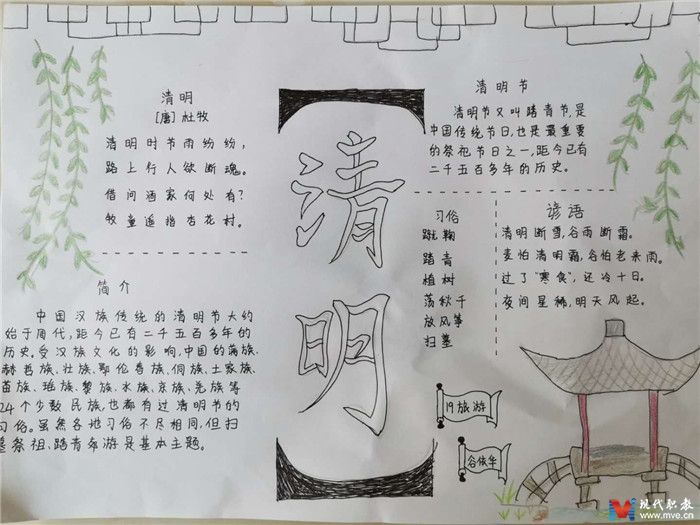 清明
[唐] 杜牧
清明时节雨纷纷,
路上行人欲断魂。
借问酒家何处有?
牧童遥指杏花村。
简介
中国汉族传统的清明节大约
始于周代,距今已有二千五百多年的
历史。受汉族文化的影响,中国的满族、
赫哲族、壮族、鄂伦春族、侗族、土家族、
苗族、瑶族、黎族、水族、京族、羌族等
24个少数民族,也都有过清明节的
习俗。虽然各地习俗不尽相同,但扫
墓祭祖、踏青郊游是基本主题。
清明
清明节
清明节又叫踏青节,是
中国传统节日,也是最重要
的祭祀节日之一,距今已有
二千五百多年的历史。
习俗
蹴鞠
踏青
植树
荡秋千
放风筝
扫墓
谚语
清明断雪,谷雨断霜。
麦怕清明霜,谷怕老来雨。
过了"寒食",还冷十日。
夜间星稀,明天风起。
19旅游
谷依华
现代职教
www.mve.cn